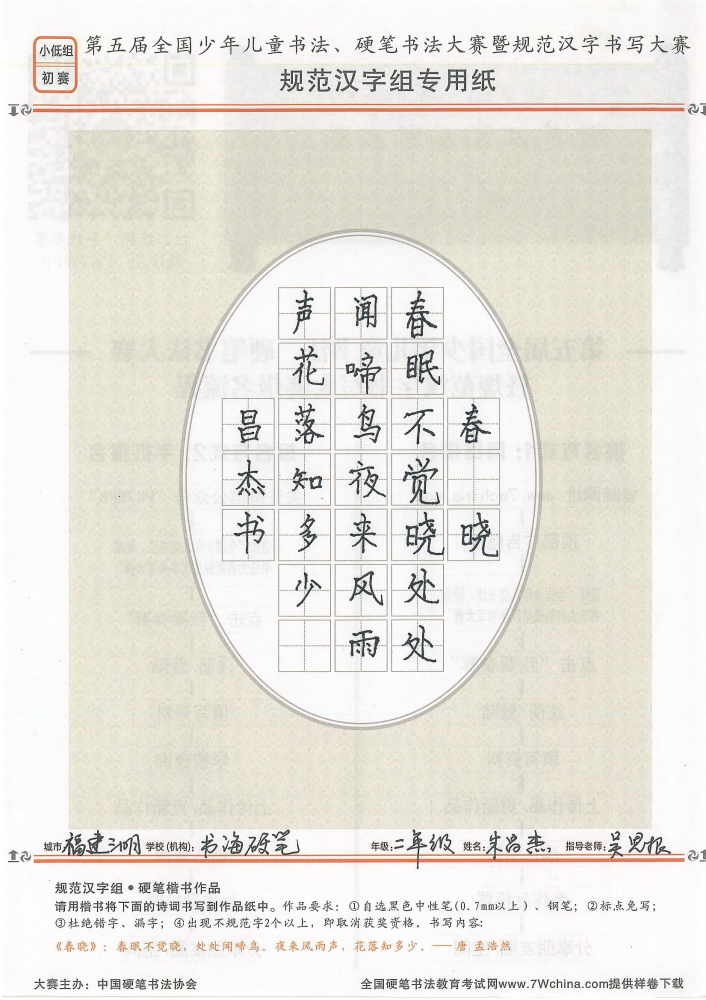 小低组
初赛
第五届全国少年儿童书法、硬笔书法大赛暨规范汉字书写大赛
规范汉字组专用纸
春晓
春眠不觉晓处处
闻啼鸟夜来风雨
声花落知多少
昌杰书
城市：福建三明 学校(机构)：书海硬笔 年级：二年级 姓名：朱昌杰 指导老师：吴思根
规范汉字组·硬笔楷书作品
请用楷书将下面的诗词书写到作品纸中。作品要求：①自选黑色中性笔(0.7mm以上）、钢笔；②标点免写；
③杜绝错字、漏字；④出现不规范字2个以上，即取消获奖资格。书写内容：
《春晓》：春眠不觉晓，处处闻啼鸟。夜来风雨声，花落知多少。——唐·孟浩然
大赛主办：中国硬笔书法协会
全国硬笔书法教育考试网www.7Wchina.com提供样卷下载